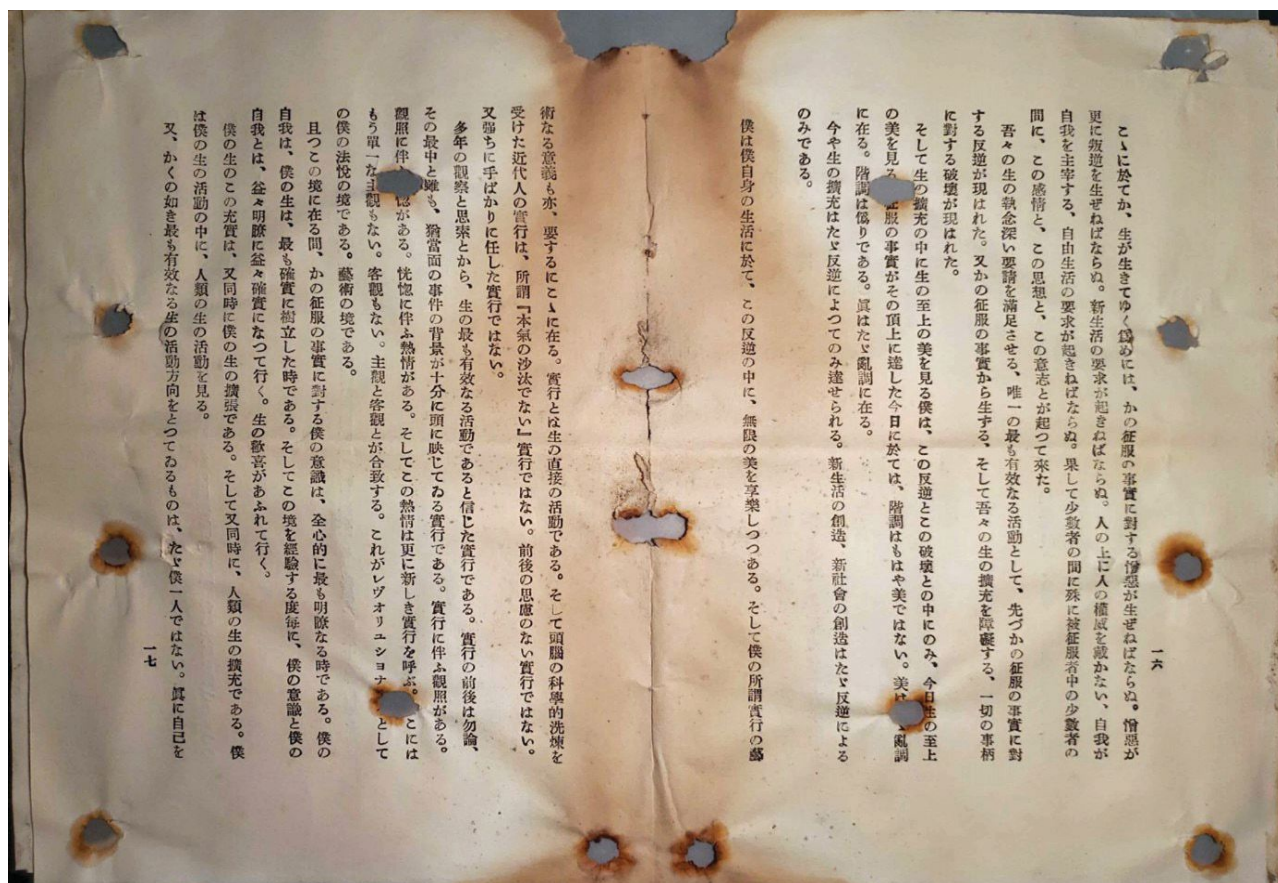 こゝに於てか、生が生きてゆく爲めには、かの征服の事實に對する憎惡が生ぜねばならぬ。憎惡が
更に叛逆を生ぜねばならぬ。新生活の要求が起きねばならぬ。人の上に人の權威を戴かない、自我が
自我を主宰する、自由生活の要求が起きねばならぬ。果して少數者の間に殊に被征服者中の少數者の
間に、この感情と、この思想と、この意志とが起つて來た。
吾々の生の執念深い要請を滿足させる、唯一の最も有效なる活動として、先づかの征服の事實に對
する反逆が現はれた。又かの征服の事實から生ずる、そして吾々の生の擴充を障礙する、一切の事柄
に對する破壞が現はれた。
そして生の擴充の中に生の至上の美を見る僕は、この反逆とこの破壞との中にのみ、今日生の至上
の美を見る 征服の事實がその頂上に達した今日に於ては、階調はもはや美ではない。美は 亂調
に在る。階調は僞りである。眞はたゞ亂調に在る。
今や生の擴充はたゞ反逆によつてのみ達せられる。新生活の創造、新社會の創造はたゞ反逆による
のみである。
僕は僕自身の生活に於て、この反逆の中に、無限の美を享樂しつつある。そして僕の所謂實行の藝
一六
術なる意義も亦、要するにこゝに在る。實行とは生の直接の活動である。そして頭腦の科學的洗煉を
受けた近代人の實行は、所謂『本氣の沙汰でない』實行ではない。前後の思慮のない實行ではない。
又强ちに手ばかりに任した實行ではない。
多年の觀察と思索とから、生の最も有效なる活動であると信じた實行である。實行の前後は勿論、
その最中と雖も、猶當面の事件の背景が十分に頭に映じてゐる實行である。實行に伴ふ觀照がある。
觀照に伴 惚がある。恍惚に伴ふ熱情がある。そしてこの熱情は更に新しき實行を呼ぶ。 こには
もう單一な主觀もない。客觀もない。主觀と客觀とが合致する。これがレヴオリユシヨナ として
の僕の法悅の境である。藝術の境である。
且つこの境に在る間、かの征服の事實に對する僕の意識は、全心的に最も明瞭なる時である。僕の
自我は、僕の生は、最も確實に樹立した時である。そしてこの境を經驗する度每に、僕の意識と僕の
自我とは、益々明瞭に益々確實になつて行く。生の歡喜があふれて行く。
僕の生のこの充實は、又同時に僕の生の擴張である。そして又同時に、人類の生の擴充である。僕
は僕の生の活動の中に、人類の生の活動を見る。
又、かくの如き最も有效なる生の活動方向をとつてゐるものは、たゞ僕一人ではない。眞に自己を
一七